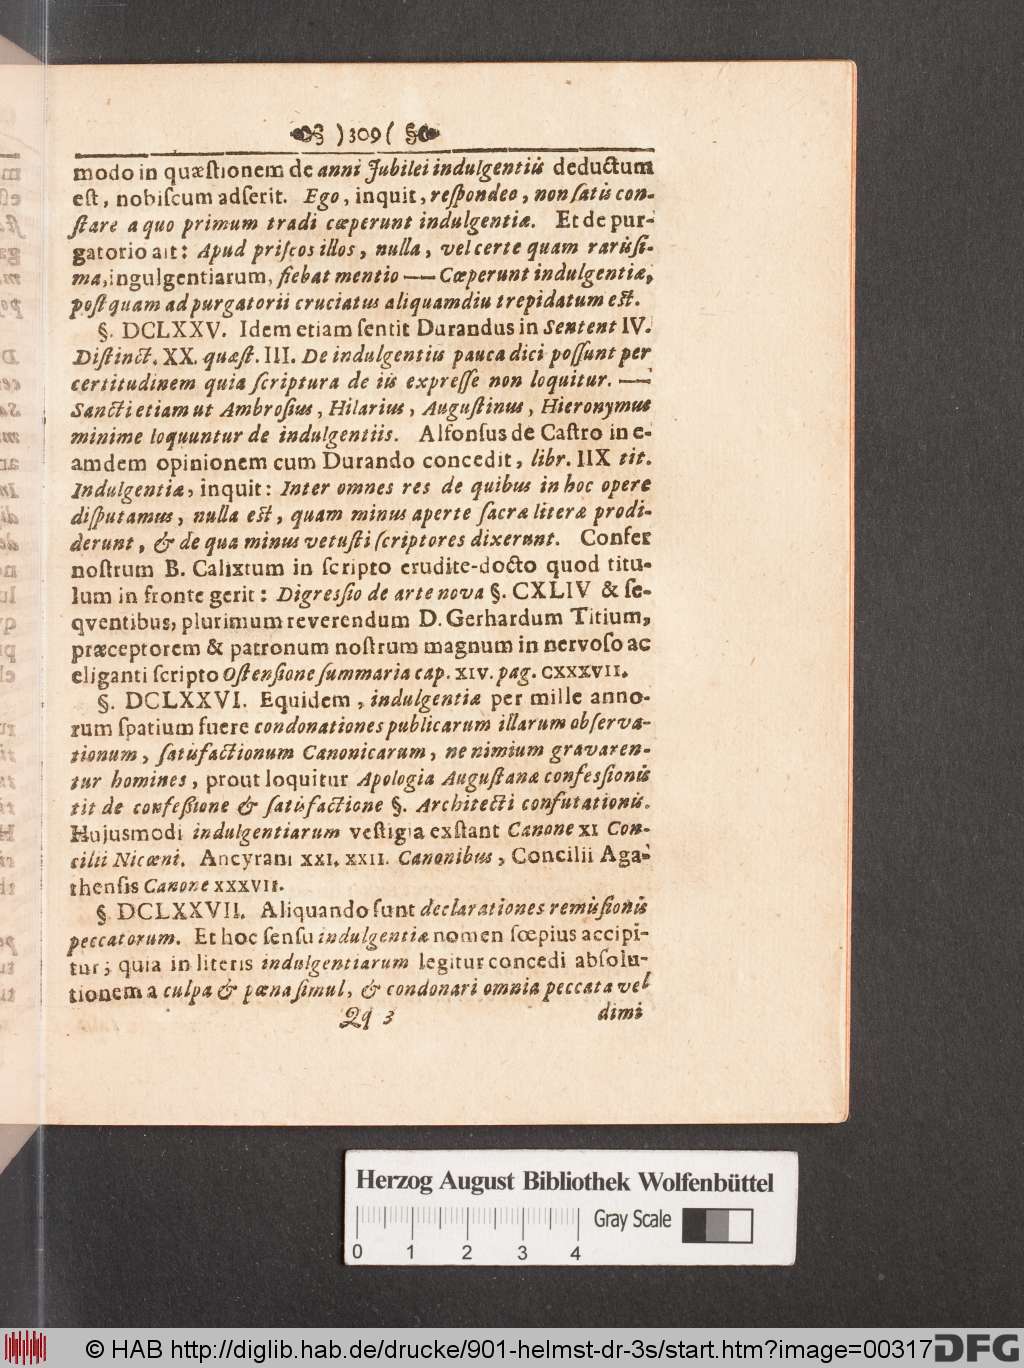 )309(
modo in quæſtionem de anni Jubilei indulgentiis deductum
eſt, nobiſcum adſerit. Ego, inquit, reſpondeo, non ſatis con-
ſtare a quo primum tradi cœperunt indulgentiæ. Et de pur-
gatorio ait: Apud priſcos illos, nulla, vel certe quam rariſſi-
ma, ingulgentiarum, fiebat mentio — Cœperunt indulgentiæ,
poſtquam ad purgatorii cruciatus aliquamdiu trepidatum eſt.
§. DCLXXV. Idem etiam ſentit Durandus in Sentent IV.
Diſtinct. XX. quæſt. III. De indulgentiis pauca dici poſſunt per
certitudinem quia ſcriptura de iis expreſſe non loquitur. —
Sancti etiam ut Ambroſius, Hilarius, Auguſtinus, Hieronymus
minime loquuntur de indulgentiis. Alfonſus de Caſtro in e-
amdem opinionem cum Durando concedit, libr. IIX tit.
Indulgentiæ, inquit: Inter omnes res de quibus in hoc opere
diſputamus, nulla eſt, quam minus aperte ſacræ literæ prodi-
derunt, & de qua minus vetuſti ſcriptores dixerunt. Confer
noſtrum B. Calixtum in ſcripto erudite-docto quod titu-
lum in fronte gerit: Digreſſio de arte nova §. CXLIV & ſe-
qventibus, plurimum reverendum D. Gerhardum Titium,
præceptorem & patronum noſtrum magnum in nervoſo ac
eliganti ſcripto Oſtenſione ſummaria cap. XIV. pag. CXXXVII.
§. DCLXXVI. Equidem, indulgentiæ per mille anno-
rum ſpatium fuere condonationes publicarum illarum obſerva-
tionum, ſatisfactionum Canonicarum, ne nimium gravaren-
tur homines, prout loquitur Apologia Auguſtanæ confeſſionis
tit de confeſſione & ſatisfactione §. Architecti confutationis.
Hujusmodi indulgentiarum veſtigia exſtant Canone XI Con-
cilii Nicæni. Ancyrani XXI. XXII. Canonibus, Concilii Aga-
thenſis Canone XXXVII.
§. DCLXXVII. Aliquando ſunt declarationes remiſſionis
peccatorum. Et hoc ſenſu indulgentiæ nomen ſœpius accipi-
tur; quia in literis indulgentiarum legitur concedi abſolu-
tionem a culpa & pœna ſimul, & condonari omnia peccata vel
Qq 3 dimi
Herzog August Bibliothek Wolfenbüttel
Gray Scale
0 1 2 3 4
© HAB http://diglib.hab.de/drucke/901-helmst-dr-3s/start.htm?image=00317 DFG